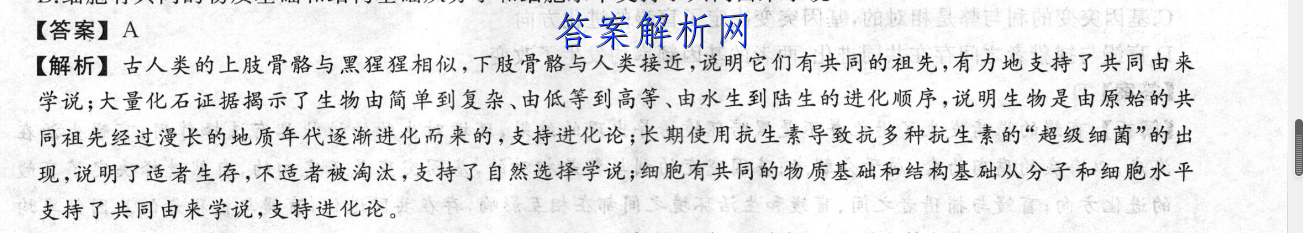 答案解析网
【答案】A
【解析】古人类的上肢骨骼与黑猩猩相似,下肢骨骼与人类接近,说明它们有共同的祖先,有力地支持了共同由来
学说;大量化石证据揭示了生物由简单到复杂、由低等到高等、由水生到陆生的进化顺序,说明生物是由原始的共
同祖先经过漫长的地质年代逐渐进化而来的,支持进化论;长期使用抗生素导致抗多种抗生素的“超级细菌”的出
现,说明了适者生存,不适者被淘汰,支持了自然选择学说;细胞有共同的物质基础和结构基础从分子和细胞水平
支持了共同由来学说,支持进化论。